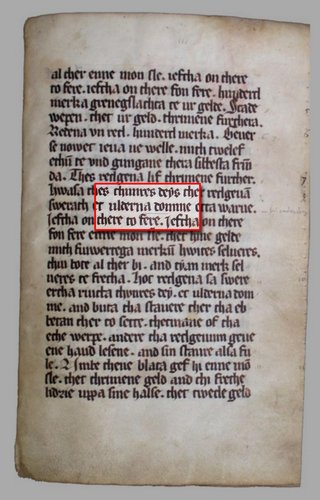 al ther enne mon sle. ieftha on there
to fere. ieftha on there fon fere. hunderd
merka te ur gelde.
wepen. thet ur geld. thrimene furthera.
Redena hunderd merka.
se nowet iena ne welle. mith twelef
ethum te vnd gungane thera
da. Thes redgena lif thrimene further.
hwasa thes thunres deys thet redgena
swerath et ulderna domme warue.
ieftha on there to fere. Ieftha on there
fon fere enne mon sle. thet hine gelde
mith fiuwerrega merkum hwites selueres.
thiu bote al ther bi. and tyan merk sel
ueres te fretha. hot redgena sa swere
ertha riuchta thunres dey. et ulderna dom
me. and buta tha stauere ther tha
ther to sette. of tha
eche werpe. andere tha redgenum geue
ene haud lesene. and sin staure alsa fu
le. thene blata gef hi enne mon
sle. thet thrimene geld and thi
lidzie uppa sine halse. thet twede geld